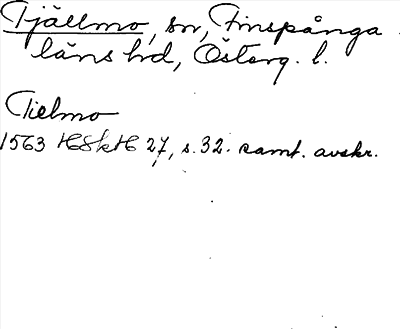 Tjällmo, sn, Finspånga
läns hd, Österg. l.
Tielmo
1563 HSkH 27, s. 32. samt. avskr.